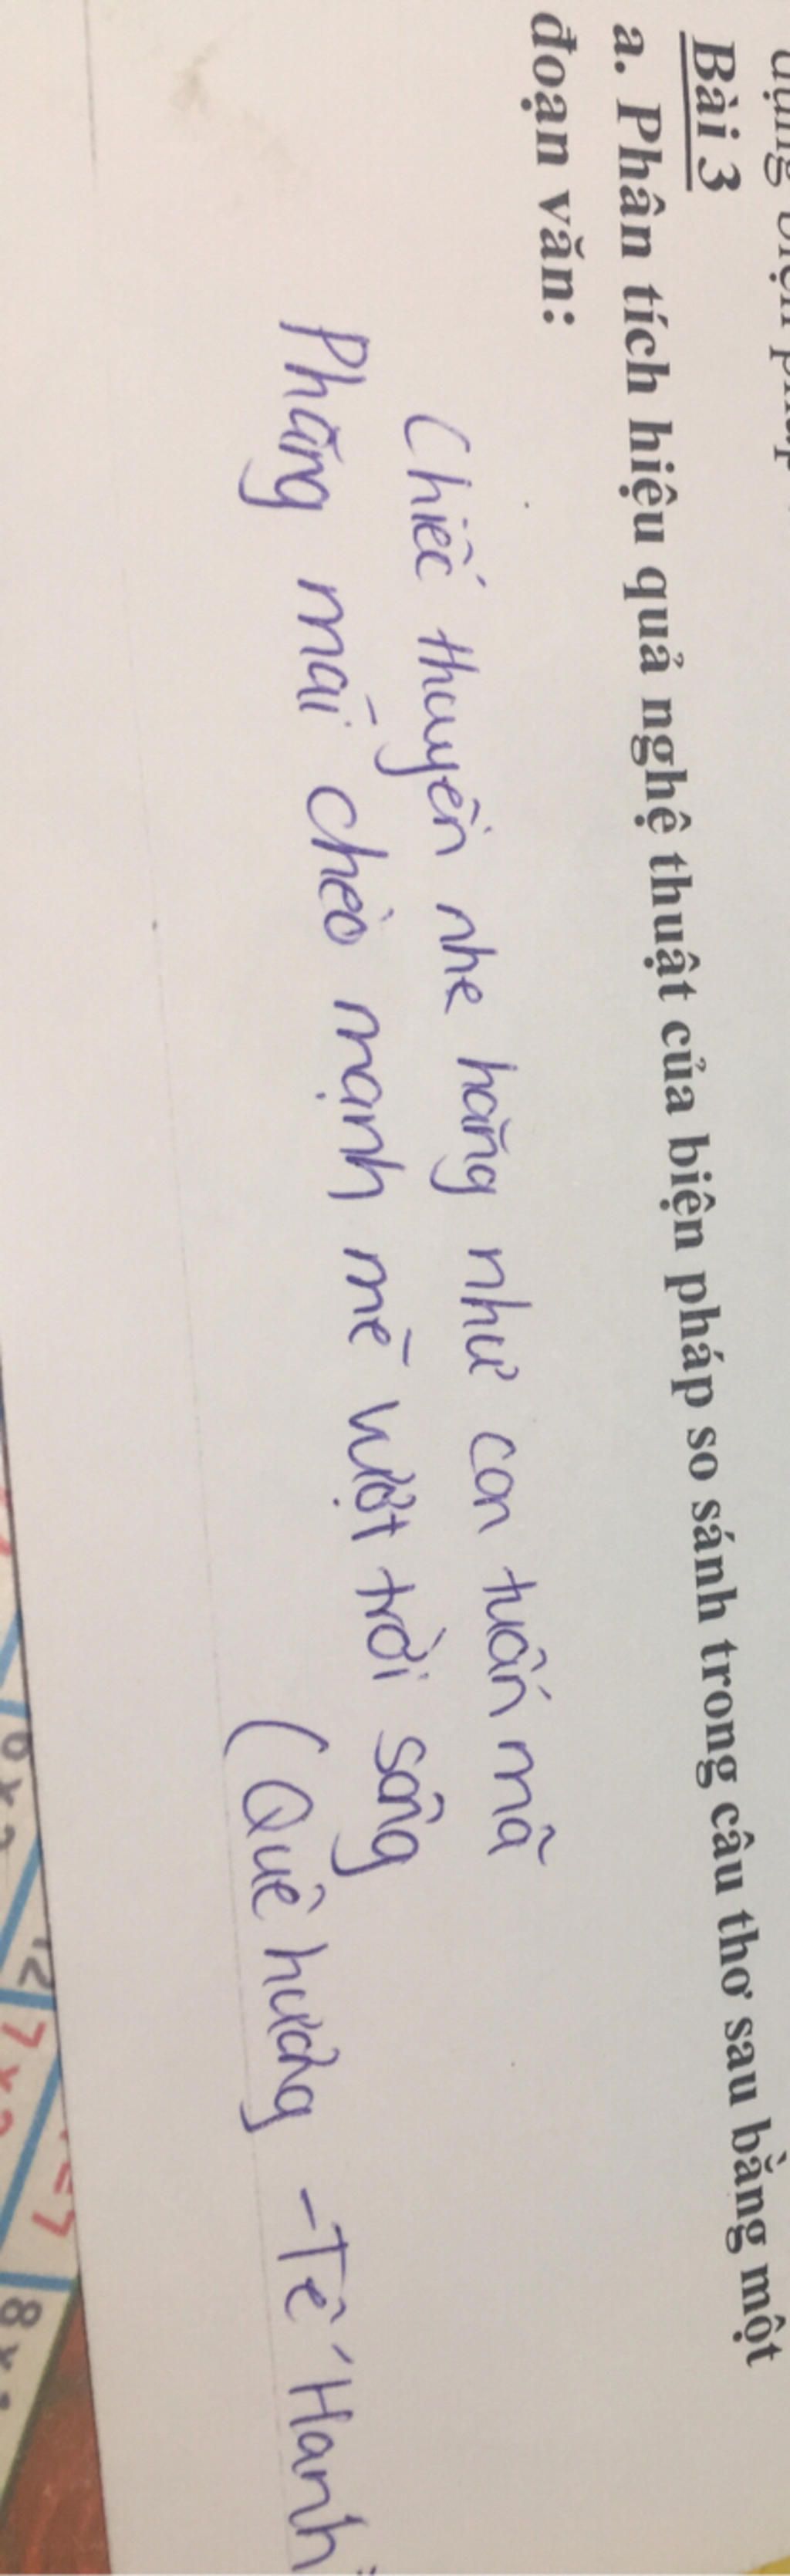 Bài 3
a. Phân tích hiệu quả nghệ thuật của biện pháp so sánh trong câu thơ sau bằng một
đoạn văn:
Chiếc thuyền nhẹ hăng như con tuấn mã
Phăng mái chèo mạnh mẽ vượt trời sông
(Quê hương - Tế Hanh
12